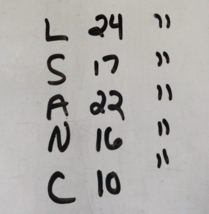 L 24 "
S 17 "
A 22 "
N 16 "
C 10 "